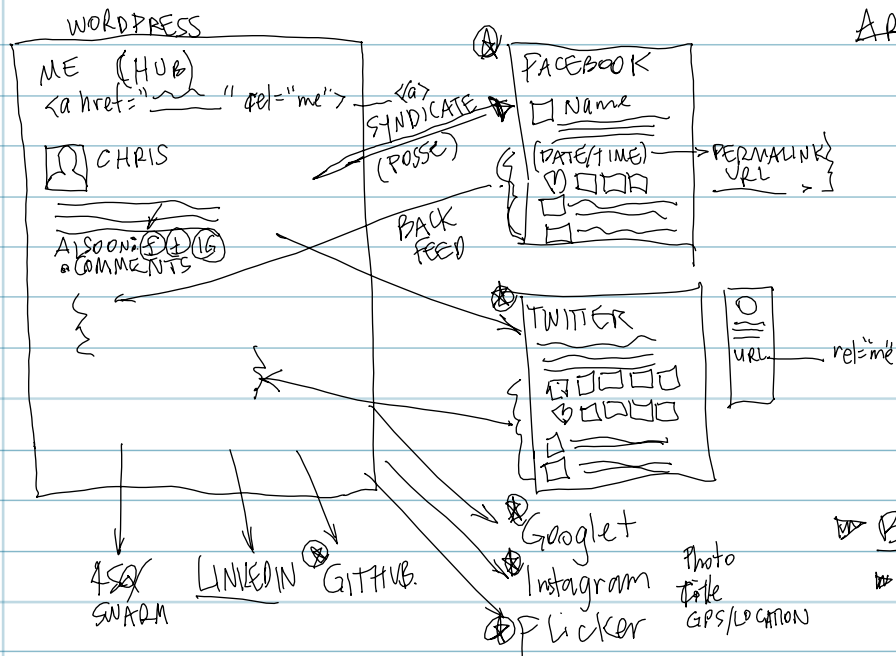 WORDPRESS
ME (HUB)
<a href="____" rel="me"> <a>
CHRIS
ALSO ON: f t IG
COMMENTS
SYNDICATE
(POSSE)
BACK
FEED
FACEBOOK
Name
(DATE/TIME)
PERMALINK
URL
TWITTER
URL
rel="me"
4SQ/
SWARM
LINKEDIN
GITHUB.
Google+
Instagram
Flicker
Photo
Title
GPS/LOCATION